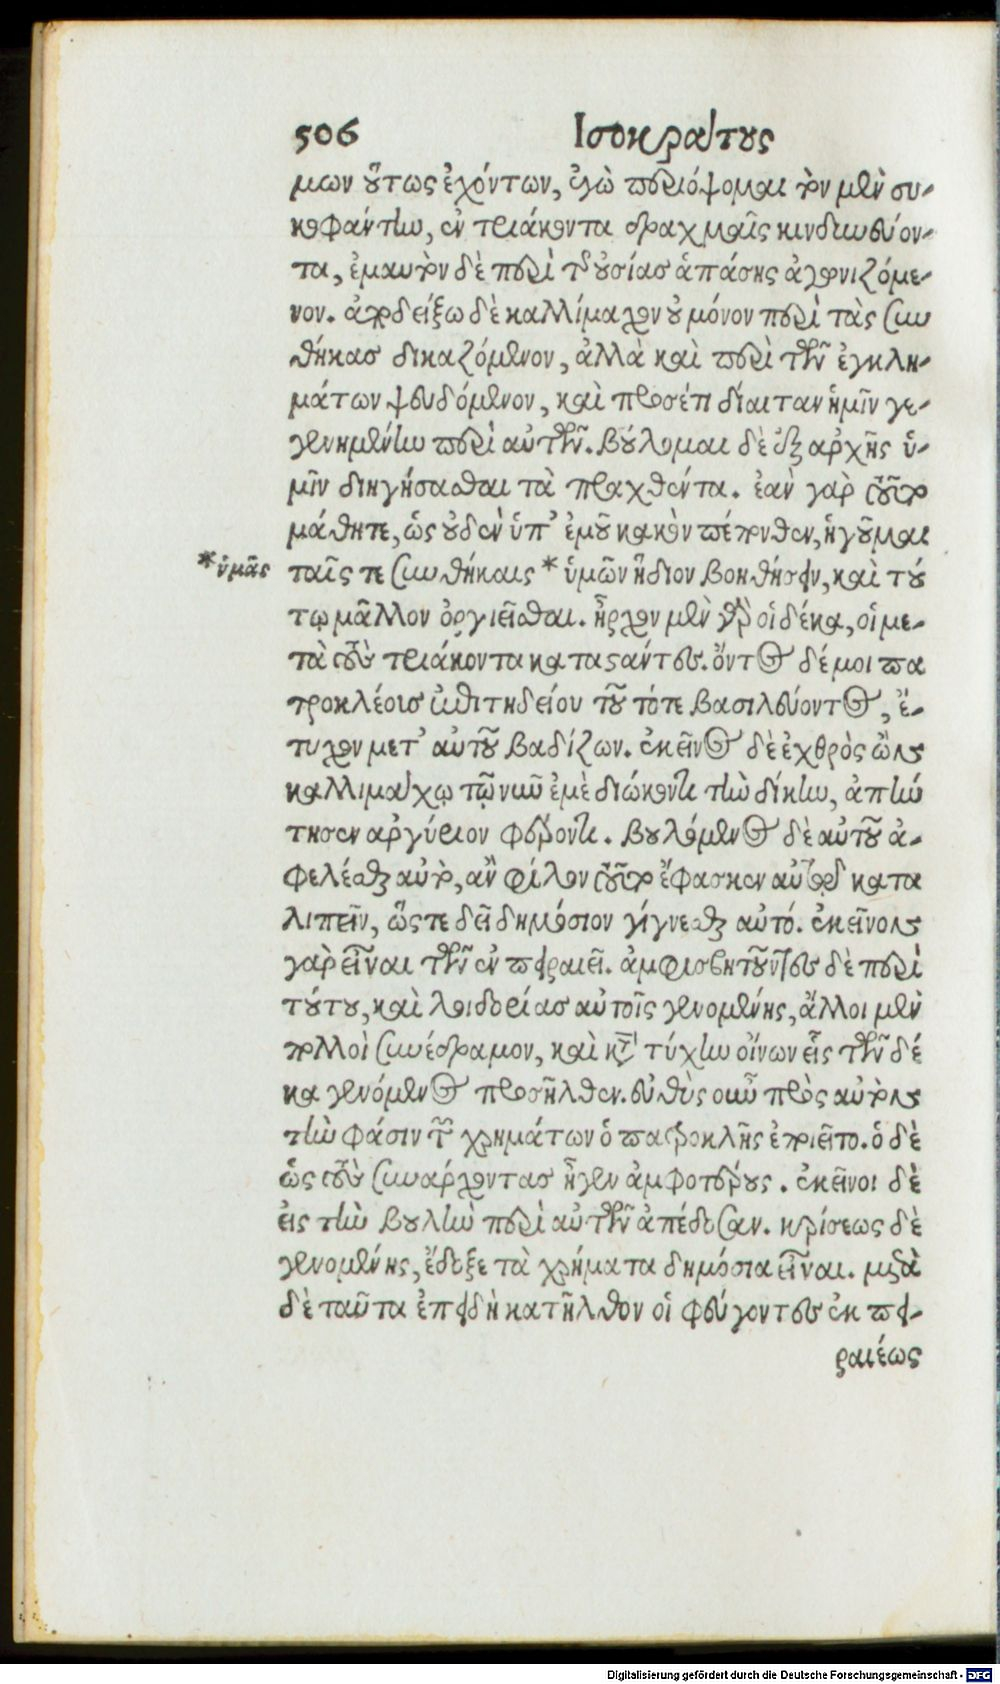 506 Ισοκράτους
μων οὕτως ἐχόντων, ἐγὼ περιόψομαι τὸν μὲν συ-
κοφάντην, ἐν τριάκοντα δραχμαῖς κινδυνεύον-
τα, ἐμαυτὸν δὲ περὶ τῆς οὐσίας ἁπάσης ἀγωνιζόμε-
νον. ἀποδείξω δὲ καλλίμαχον οὐ μόνον περὶ τὰς συν
θήκας δικαζόμενον, ἀλλὰ καὶ περὶ τῶν ἐγκλη-
μάτων ψευδόμενον, καὶ προσέτι δίαιταν ἡμῖν γε-
γενημένην περὶ αὐτῶν. βούλομαι δὲ ἐξ αρχῆς ὑ-
μῖν διηγήσασθαι τὰ πραχθέντα. ἐαν γὰρ τοῦτο
μάθητε, ὡς οὐδὲν ὑπ' ἐμοῦ κακὸν πέπονθεν, ἡγοῦμαι
*ὑμᾶς ταῖς τε συνθήκαις * ὑμῶν ἥδιον βοηθήσειν, καὶ τού
τῳ μᾶλλον ὀργιεῖσθαι. ἦρχον μὲν γὸ οἱ δέκα, οἱ με-
τὰ τοὺς τριάκοντα καταστάντες. ὄντος δέ μοι πα
τροκλέοις ἐπιτηδείου τοῦ τότε βασιλεύοντος, ἔ-
τυχον μετ' αὐτοῦ βαδίζων. ἐκεῖνος δὲ ἐχθρὸς ὢν
καλλιμάχῳ τῷ νῦν ἐμὲ διώκοντι τὴν δίκην, ἀπήν
τησεν αργύριον φέροντι. βουλόμενος δὲ αὐτοῦ ἀ-
φελέσθαι αὐτὸ, αν φίλον τοῦτο ἔφασκεν αὐτῷ κατα
λιπεῖν, ὥστε δεῖ δημόσιον γίγνεσθαι αὐτό. ἐκεῖνον
γὰρ εἶναι τῶν ἐν πειραιεῖ. ἀμφισβητούντες δὲ περὶ
τούτου, καὶ λοιδορίας αὐτοῖς γενομένης, ἄλλοι μὲν
πολλοὶ συνέδραμον, καὶ κατὰ τύχην οἴνων εἷς τῶν δέ
κα γενόμενος προσῆλθεν. εὐθὺς οὖν πρὸς αὐτὸν
τὴν φάσιν τῶν χρημάτων ὁ πατροκλῆς ἐποιεῖτο. ὁ δὲ
ὡς τοὺς συναρχοντας ἦγεν ἀμφοτέρους. ἐκεῖνοι δὲ
εἰς τὴν βουλὴν περὶ αὐτῶν ἀπέδοσαν. κρίσεως δὲ
γενομένης, ἔδοξε τὰ χρήματα δημόσια εἶναι. μετὰ
δὲ ταῦτα ἐπειδὴ κατῆλθον οἱ φεύγοντες ἐκ πει-
ραιέως
Digitalisierung gefördert durch die Deutsche Forschungsgemeinschaft - DFG